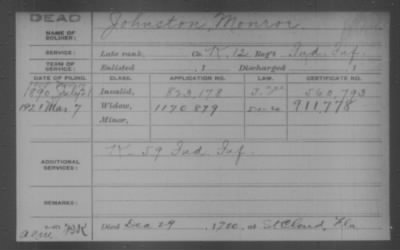 DEAD
NAME OF SOLDIER: Johnston, Monroe
SERVICE: Late rank, Co. K, 12 Reg't Ind. Inf.
TERM OF SERVICE: Enlisted , 1 Discharged , 1
DATE OF FILING. CLASS. APPLICATION NO. LAW. CERTIFICATE NO.
1890 July 21 Invalid, 823,178 560,793
1921 Mar 7 Widow, 1170879 911,778
Minor,
ADDITIONAL SERVICES: K. 59 Ind. Inf.
REMARKS:
Died Dec 29 , 1900, at St Cloud, Fla